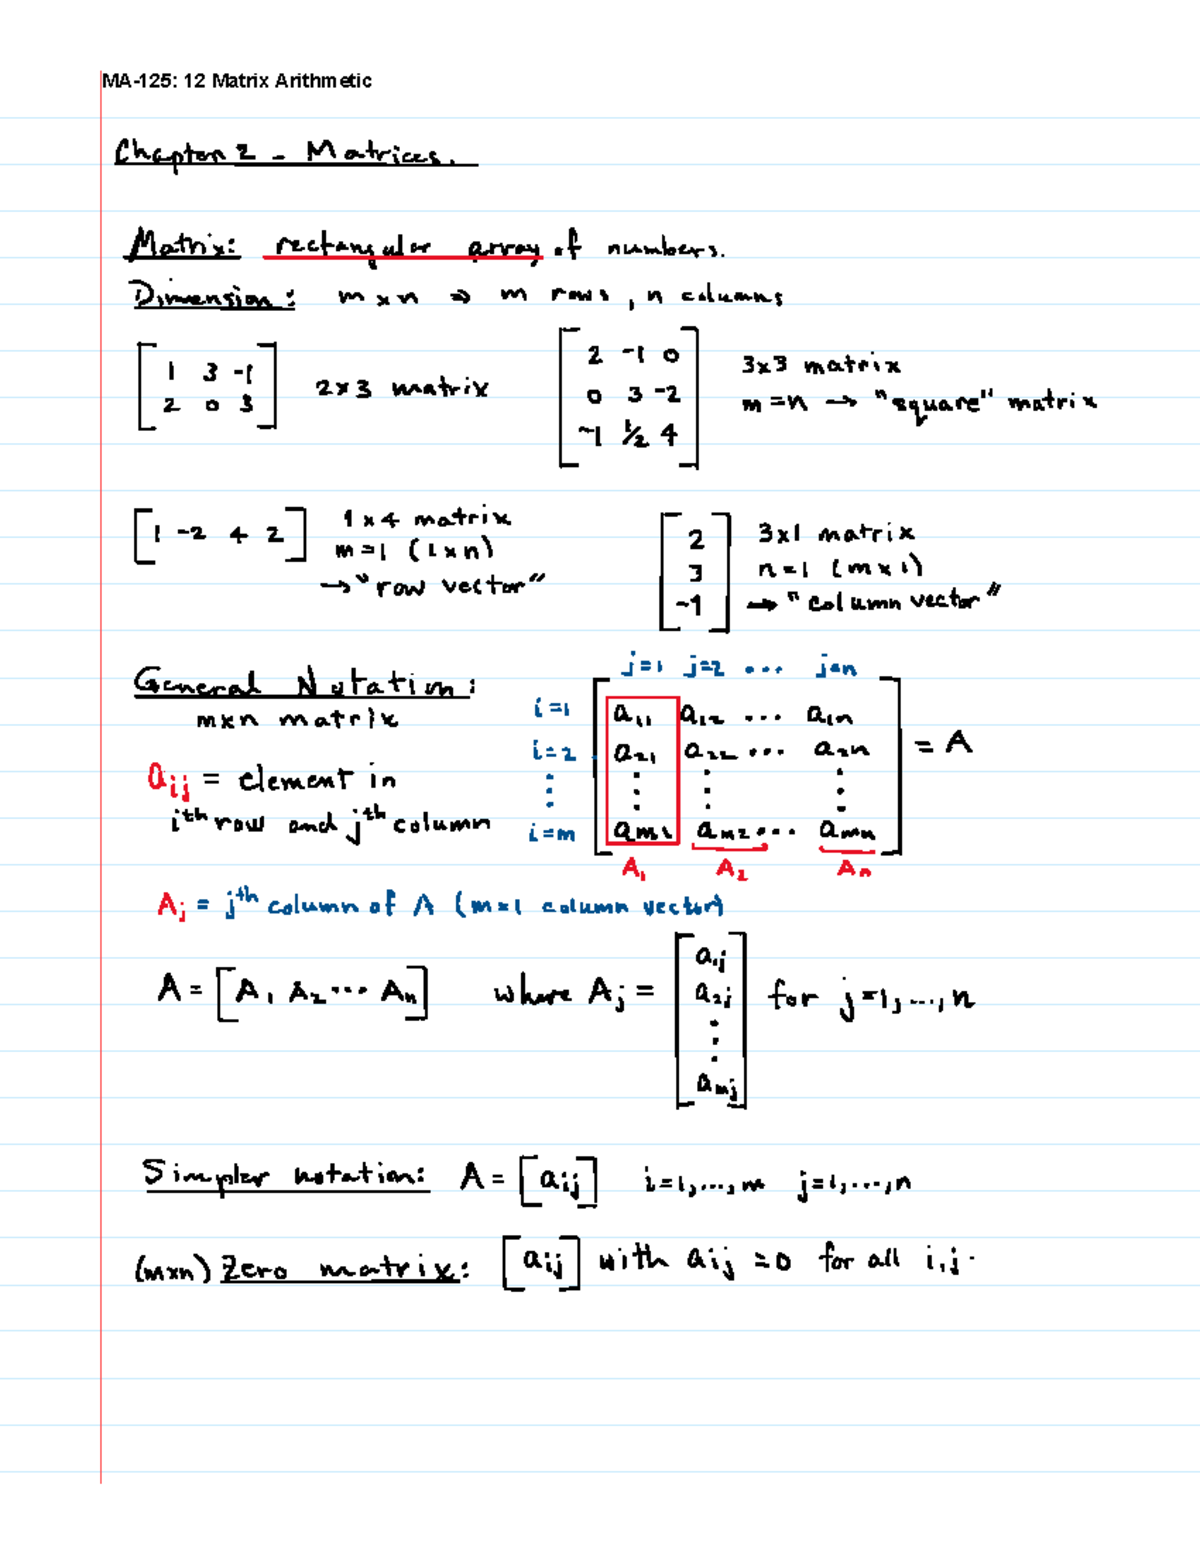 MA-125: 12 Matrix Arithmetic
Chapter 2 - Matrices.
Matrix: rectangular array of numbers.
Dimension: m x n ⇒ m rows, n columns
[ 1 3 -1
2 0 3 ] 2x3 matrix
[ 2 -1 0
0 3 -2
-1 1/2 4 ] 3x3 matrix
m = n → "square" matrix
[1 -2 4 2] 1 x 4 matrix
m = 1 (1 x n)
→ "row vector"
[ 2
3
-1 ] 3x1 matrix
n = 1 (m x 1)
→ "column vector"
General Notation:
mxn matrix
aij = element in
ith row and jth column
j=1 j=2 ... j=n
i=1 a11 a12 ... a1n
i=2 a21 a22 ... a2n = A
⋮ ⋮ ⋮ ⋮
i=m am1 am2 ... amn
A1 A2 An
Aj = jth column of A (m x 1 column vector)
A = [A1 A2 ... An] where Aj = [ a1j
a2j
⋮
amj ] for j=1, ..., n
Simpler notation: A = [aij] i=1,...,m j=1,...,n
(mxn) Zero matrix: [aij] with aij = 0 for all i,j.